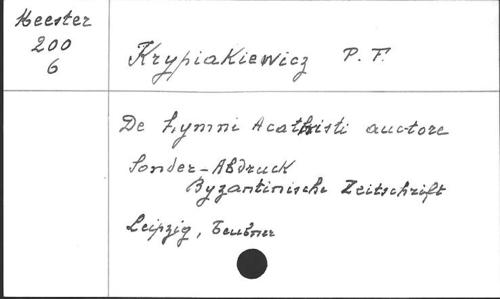 Heester
200
6
Krypiakiewicz P. F.
De hymni Acathisti auctore
Sonder-Abdruck
Byzantinische Zeitschrift
Leipzig, Teubner